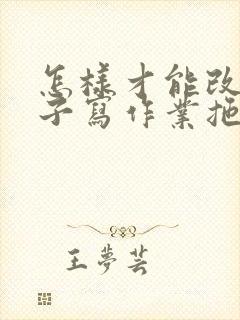 怎樣才能改
子寫作業拖
王夢芸